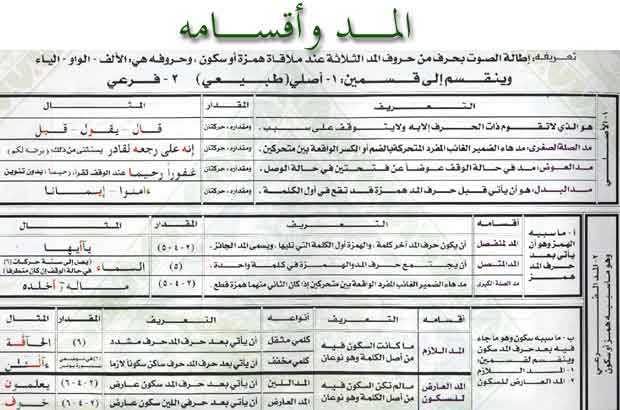 المد وأقسامه
تعريفه: إطالة الصوت بحرف من حروف المد الثلاثة عند ملاقاة همزة أو سكون، وحروفه هي: الألف - الواو - الياء
وينقسم إلى قسمين: ١- أصلي (طبيعي) ٢- فرعي
التعريف المقدار المثال
١- الأصلي
هو الذي لا تقوم ذات الحرف إلا به ولا يتوقف على سبب. ومقداره، حركتان قال - يقول - قيل
مد الصلة الصغرى، مد هاء الضمير الغائب المفرد المتحركة بالضم أو الكسر الواقعة بين متحركين. ومقداره، حركتان إنه على رجعه لقادر يستثنى من ذلك (يرضه لكم)
مد العوض: مد في حالة الوقف عوضاً عن فتحتين في حالة الوصل. ومقداره، حركتان غفوراً رحيما عند الوقف تقرأ، رحيما، بدون تنوين
مد البدل: هو أن يأتي قبل حرف المد همزة قد تقع في أول الكلمة. ومقداره، حركتان ءامنوا - إيمانا
أقسامه التعريف المقدار المثال
٢- المد الفرعي
وهو ما سببه همز أو سكون
أ- ما سببه الهمز وهو أن يأتي بعد حرف المد همز
المد المنفصل أن يكون حرف المد آخر كلمة، والهمزة أول الكلمة التي تليها. ويسمى المد الجائز. (٢-٤-٥) يآأيها
المد المتصل أن يجتمع حرف المد والهمزة في كلمة واحدة. (٥) السماء (يصل إلى ستة حركات (٦) في حالة الوقف إن كان متطرفا)
مد صلة الكبرى مد هاء الضمير الغائب المفرد الواقعة بين متحركين إذا كان الثاني منهما همزة قطع. (٢-٤-٥) ماله أخلده
أقسامه التعريف أنواعه التعريف المقدار المثال
ب- ما سببه سكون وهو ما جاء فيه بعد حرف المد سكون وينقسم لقسمين
١- المد اللازم
٢- المد العارض للسكون
المد اللازم ما كانت السكون فيه من أصل الكلمة وهو نوعان كلمي مثقل أن يأتي بعد حرف المد حرف مشدد (٦) الحآقة
كلمي مخفف أن يأتي بعد حرف المد حرف ساكن سكوناً لازما ءآلئن
المد العارض للسكون ما لم تكن السكون فيه من أصل الكلمة وهو نوعان المد اللين أن يأتي بعد حرف المد سكون عارض (٢-٤-٦) يعلمون
أن يأتي بعد حرفي اللين سكون عارض (٢-٤-٦) خوف